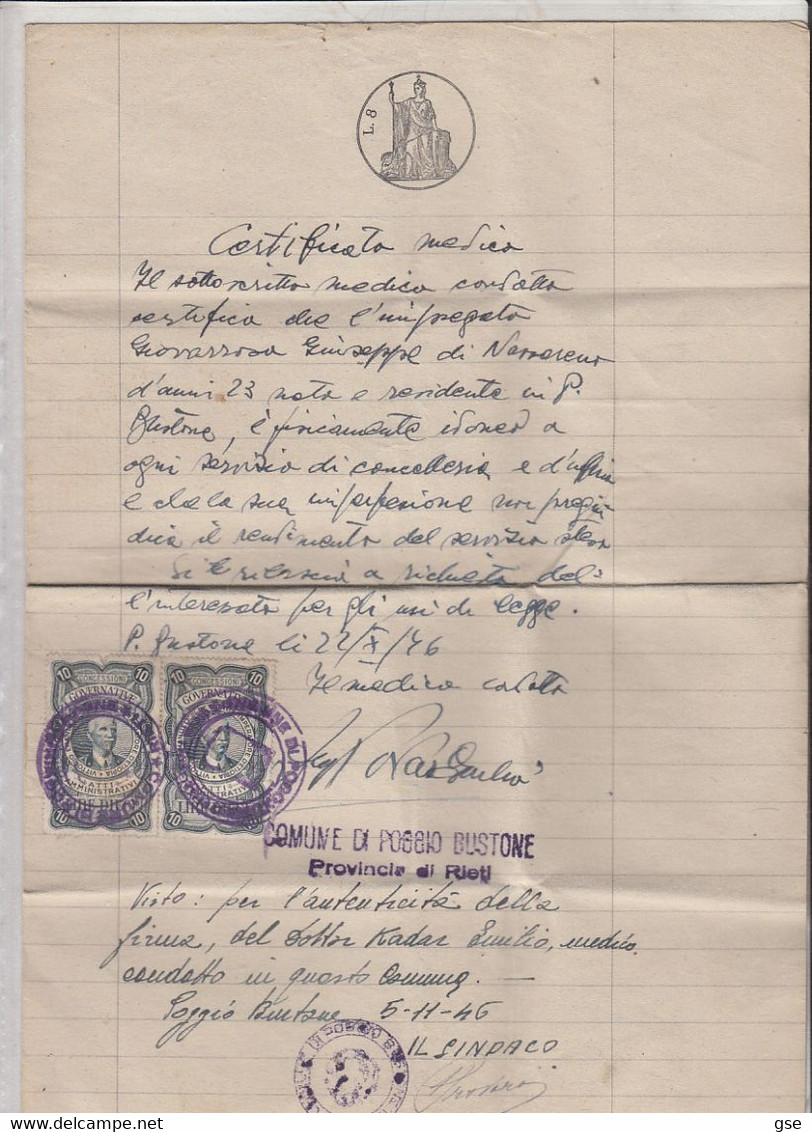 L. 8
Certificato medico
Il sottoscritto medico condotto
certifica che l'impiegato
Giuseppe di
d'anni 23 nato e residente in P.
Bustone, è fisicamente idoneo a
ogni servizio di cancelleria e d'ufficio
e che la sua imperfezione non pregiu
dica il rendimento del servizio stesso
Si rilascia a richiesta del
l'interessato per gli usi di legge.
P. Bustone li 22/X/46
Il medico condotto
10 CONCESSIONI 10
GOVERNATIVE
ATTI
AMMINISTRATIVI
LIRE DIECI
10 10
10 CONCESSIONI 10
GOVERNATIVE
ATTI
LIRE DIECI
10 10
COMUNE DI POGGIO BUSTONE
Provincia di Rieti
Visto: per l'autenticità della
firma, del dottor Kadar Emilio, medico
condotto in questo Comune. —
Poggio Bustone 5-11-46
IL SINDACO
gse